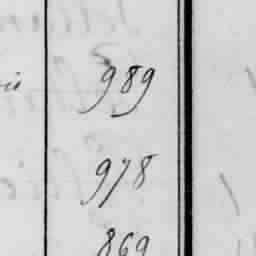 989
978
869